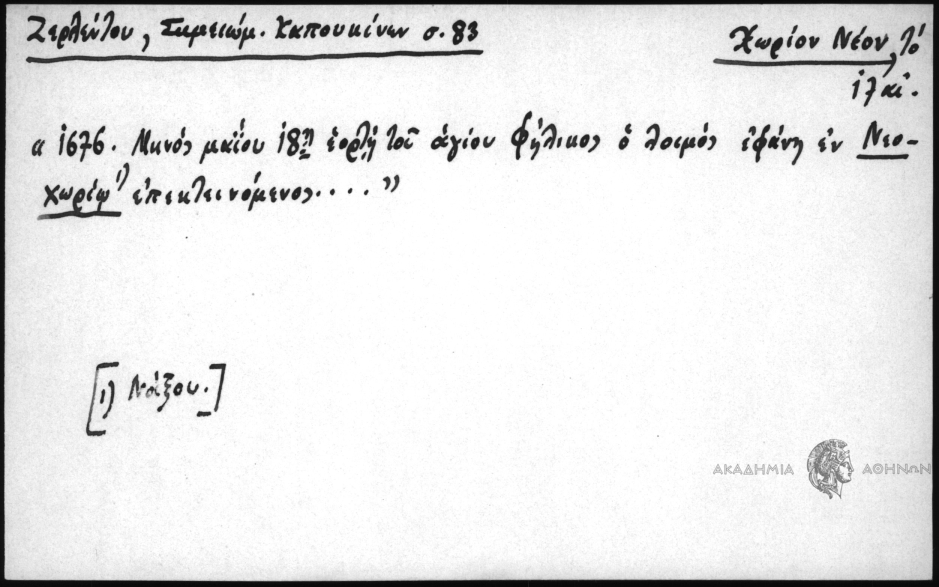 Ζερλέντου, Σημειώμ. Καπουκίνων σ. 83
Χωρίον Νέον, τό
17 αἰ.
« 1676. Μηνός μαΐου 18η ἑορτή τοῦ ἁγίου Φήλικος ὁ λοιμός ἐφάνη ἐν Νεο-
χωρίῳ ¹) ἐπεκτεινόμενος.... »
[1) Νάξου.]
ΑΚΑΔΗΜΙΑ ΑΘΗΝΩΝ